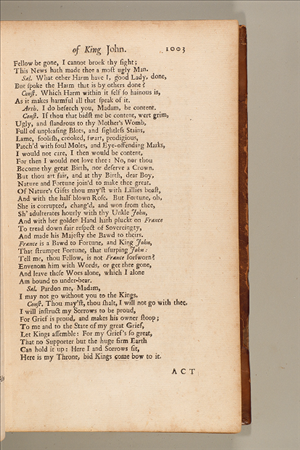 of King John. 1003
Fellow be gone, I cannot brook thy sight;
This News hath made thee a most ugly Man.
Sal. What other Harm have I, good Lady, done,
But spoke the Harm that is by others done?
Const. Which Harm within it self so hainous is,
As it makes harmful all that speak of it.
Arth. I do beseech you, Madam, be content.
Const. If thou that bidst me be content, wert grim,
Ugly, and slandrous to thy Mother's Womb,
Full of unpleasing Blots, and sightless Stains,
Lame, foolish, crooked, swart, prodigious,
Patch'd with foul Moles, and Eye-offending Marks,
I would not care, I then would be content,
For then I would not love thee: No, nor thou
Become thy great Birth, nor deserve a Crown.
But thou art fair, and at thy Birth, dear Boy,
Nature and Fortune join'd to make thee great.
Of Nature's Gifts thou may'st with Lillies boast,
And with the half blown Rose. But Fortune, oh,
She is corrupted, chang'd, and won from thee,
Sh' adulterates hourly with thy Unkle John,
And with her golden Hand hath pluckt on France
To tread down fair respect of Sovereignty,
And made his Majesty the Bawd to theirs.
France is a Bawd to Fortune, and King John,
That strumpet Fortune, that usurping John:
Tell me, thou Fellow, is not France forsworn?
Envenom him with Words, or get thee gone,
And leave those Woes alone, which I alone
Am bound to under-bear.
Sal. Pardon me, Madam,
I may not go without you to the Kings.
Const. Thou may'st, thou shalt, I will not go with thee.
I will instruct my Sorrows to be proud,
For Grief is proud, and makes his owner stoop;
To me and to the State of my great Grief,
Let Kings assemble: For my Grief's so great,
That no Supporter but the huge firm Earth
Can hold it up: Here I and Sorrows sit,
Here is my Throne, bid Kings come bow to it.
ACT